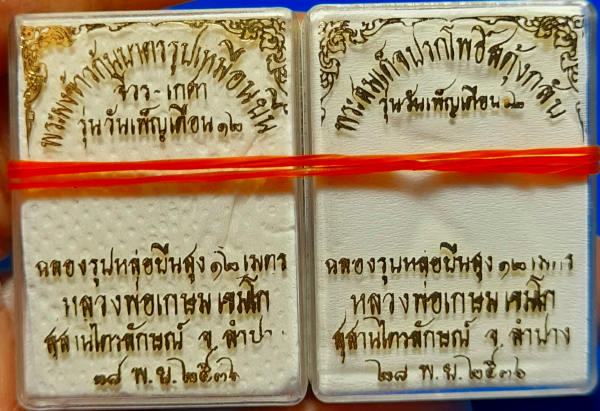 พระผงข้าวก้นบาตรรูปเหมือนนั่ง
จีวร-เกศา
รุ่นวันเพ็ญเดือน ๑๒
ฉลองรูปหล่อยืนสูง ๑๒ เมตร
หลวงพ่อเกษม เขมโก
สุสานไตรลักษณ์ จ.ลำปา
๒๘ พ.ย.๒๕๓๖
พระสมเด็จปรกโพธิ์
รุ่นวันเพ็ญเดือน ๑๒
ฉลองรูปหล่อยืนสูง ๑๒ เมตร
หลวงพ่อเกษม เขมโก
สุสานไตรลักษณ์ จ.ลำปาง
๒๘ พ.ย.๒๕๓๖